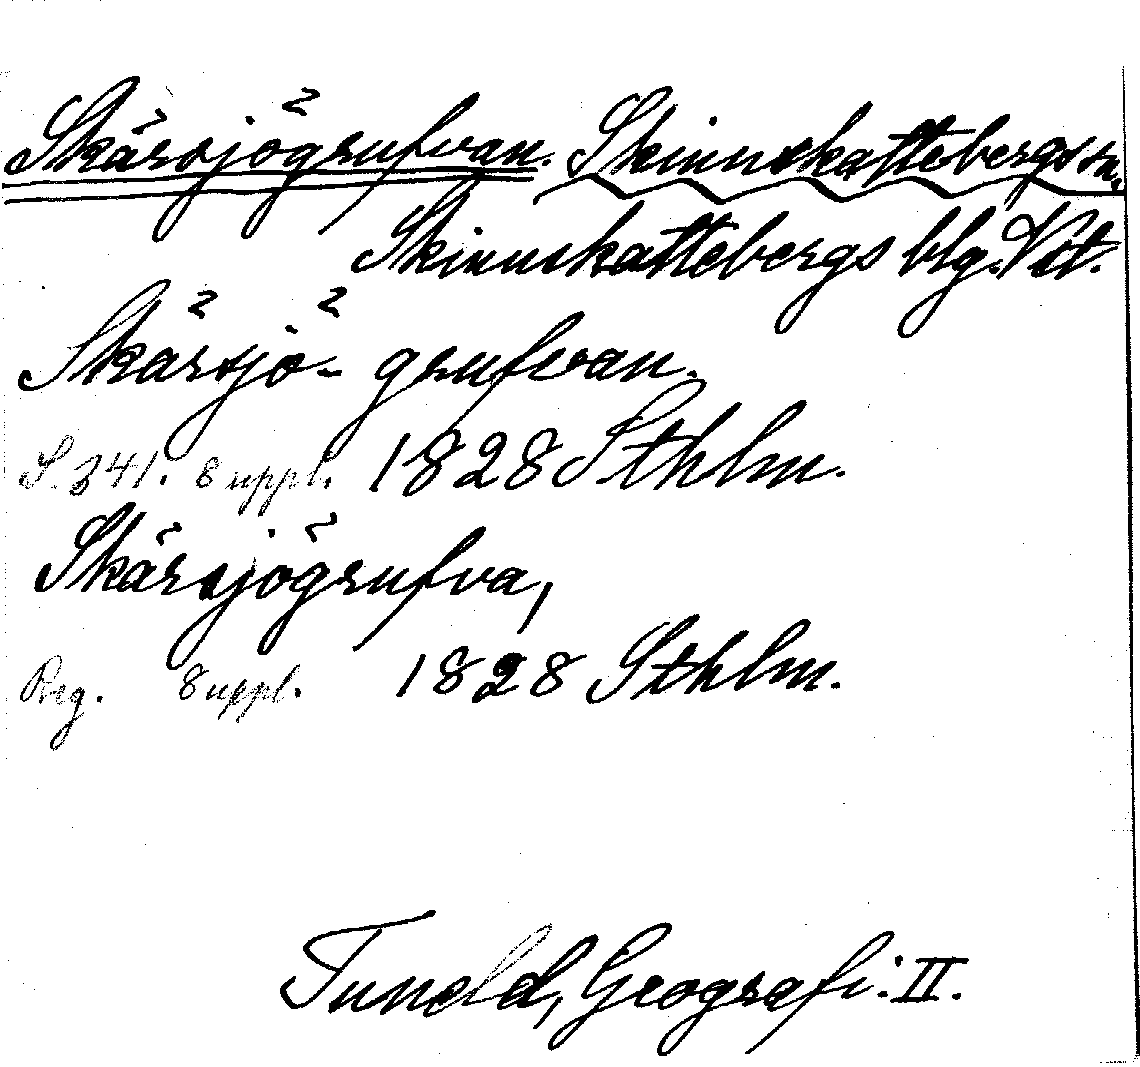 Skärsjögrufvan. Skinnskattebergs sn,
Skinnskattebergs blg. Vst.
Skärsjö- grufvan.
S. 341. Suppl. 1828 Sthlm.
Skärsjögrufva,
Reg. Suppl. 1828 Sthlm.
Tuneld, Geografi. II.